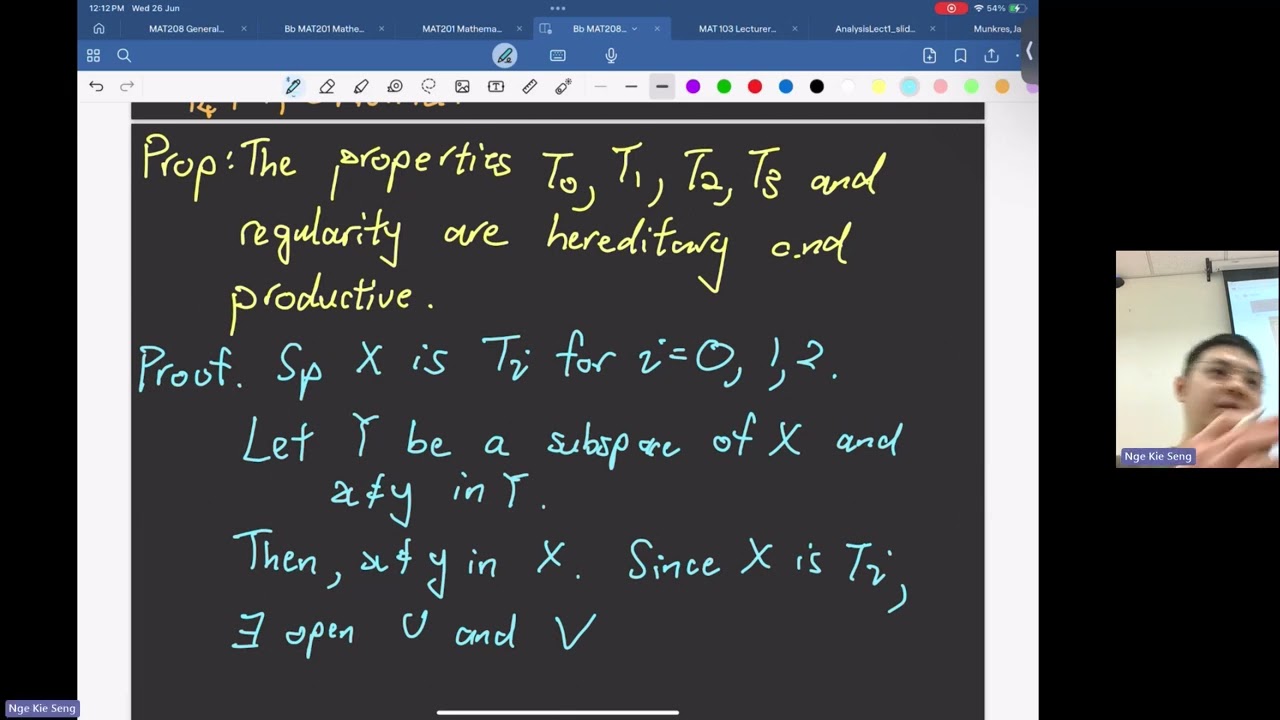 12:12 PM Wed 26 Jun
54%
MAT208 General...
Bb MAT201 Mathe...
MAT201 Mathema...
Bb MAT208...
MAT103 Lecturer...
AnalysisLect1_slid...
Munkres, Ja
Prop: The properties T0, T1, T2, T3 and
regularity are hereditary and
productive.
Proof. Sp X is Ti for i=0, 1, 2.
Let Y be a subspace of X and
x≠y in Y.
Then, x≠y in X. Since X is Ti,
∃ open U and V
Nge Kie Seng
Nge Kie Seng